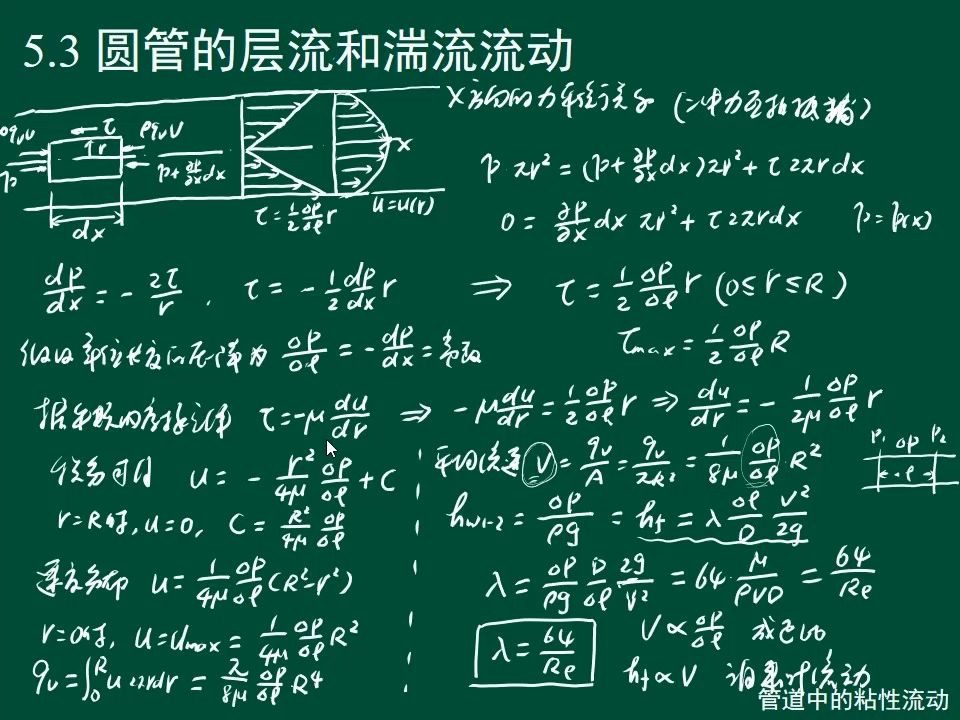 5.3 圆管的层流和湍流流动
x方向的力平衡关系 (二冲力互相抵消)
ρq_v v τ ρq_v v
r x
p p+∂p/∂x dx
dx τ=1/2 Δp/Δl r u=u(r)
p·πr²=(p+∂p/∂x dx)πr²+τ2πrdx
0=∂p/∂x dx πr²+τ2πrdx p=p(x)
dp/dx=-2τ/r, τ=-1/2 dp/dx r ⇒ τ=1/2 Δp/Δl r (0≤r≤R)
假设单位长度的压降为 Δp/Δl=-dp/dx=常数 τmax=1/2 Δp/Δl R
据牛顿内摩擦定律 τ=-μ du/dr ⇒ -μ du/dr=1/2 Δp/Δl r ⇒ du/dr=-1/2μ Δp/Δl r
积分可得 u=-r²/4μ Δp/Δl+C
r=R时, u=0, C=R²/4μ Δp/Δl
速度分布 u=1/4μ Δp/Δl (R²-r²)
r=0时, u=umax=1/4μ Δp/Δl R²
q_v=∫₀ᴿ u 2πrdr=π/8μ Δp/Δl R⁴
平均流速 V=q_v/A=q_v/πR²=1/8μ Δp/Δl R²
P₁ Δp P₂
l
h_w1-2=Δp/ρg=h_f=λ Δl/D V²/2g
λ=Δp/ρg D/Δl 2g/V²=64 μ/ρVD=64/Re
λ=64/Re V∝Δp/Δl 成正比
h_f∝V 流动
管道中的粘性流动